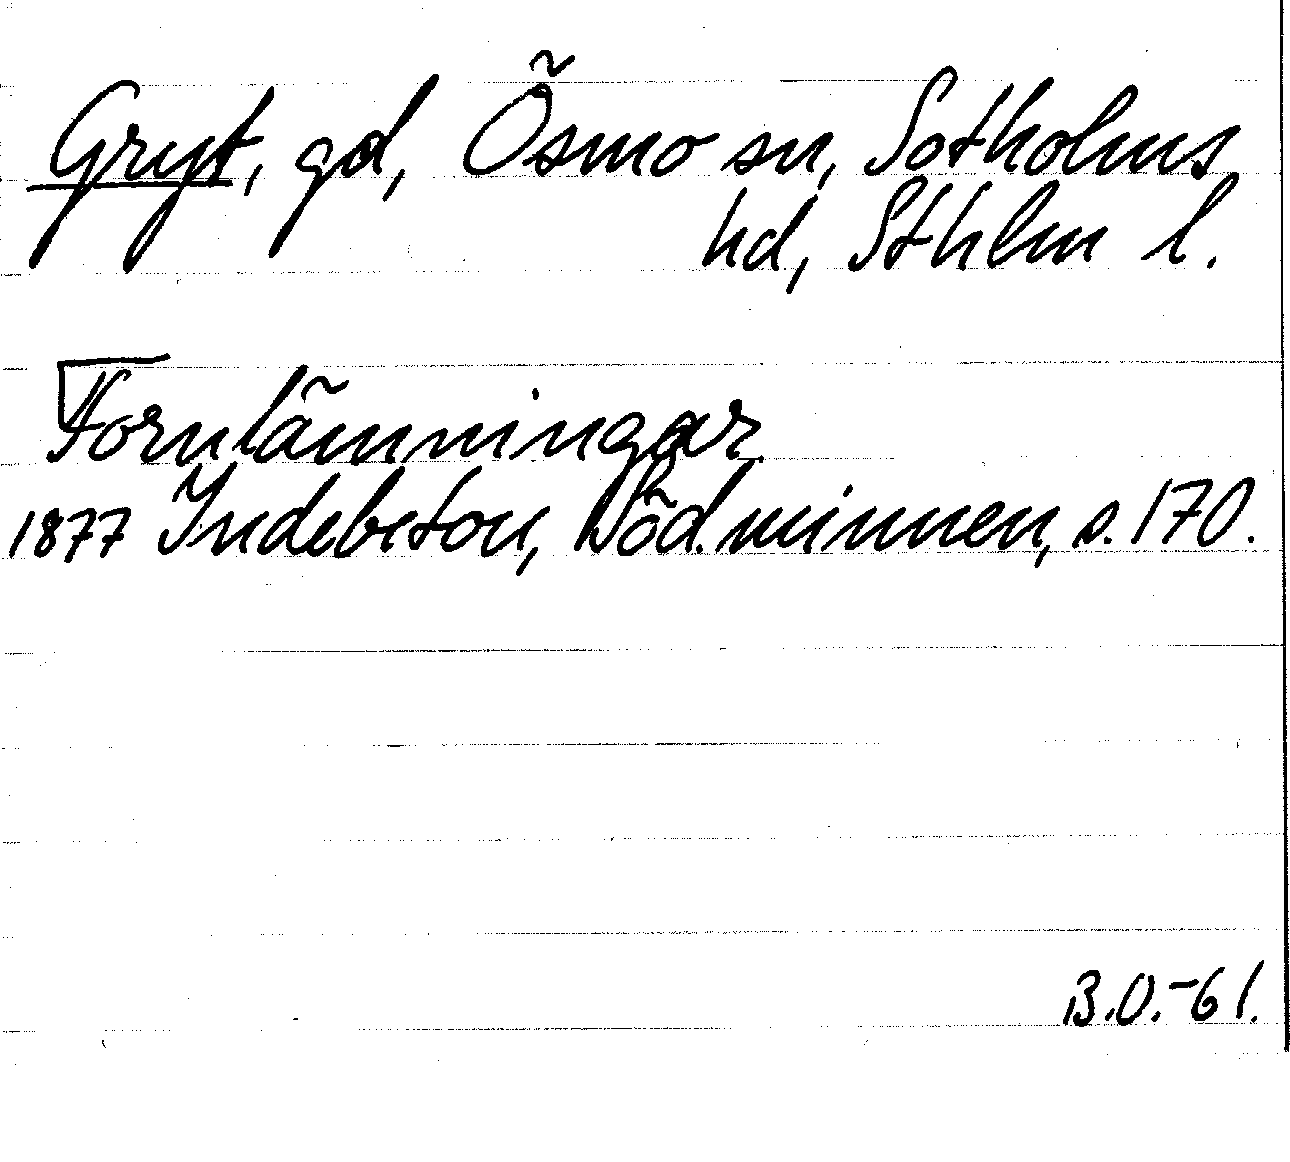 Gryt, gd, Ösmo sn, Sotholms
hd, Sthlm l.
Fornlämningar
1877 Indebetou, Död.minnen, s. 170.
B.O.-61.